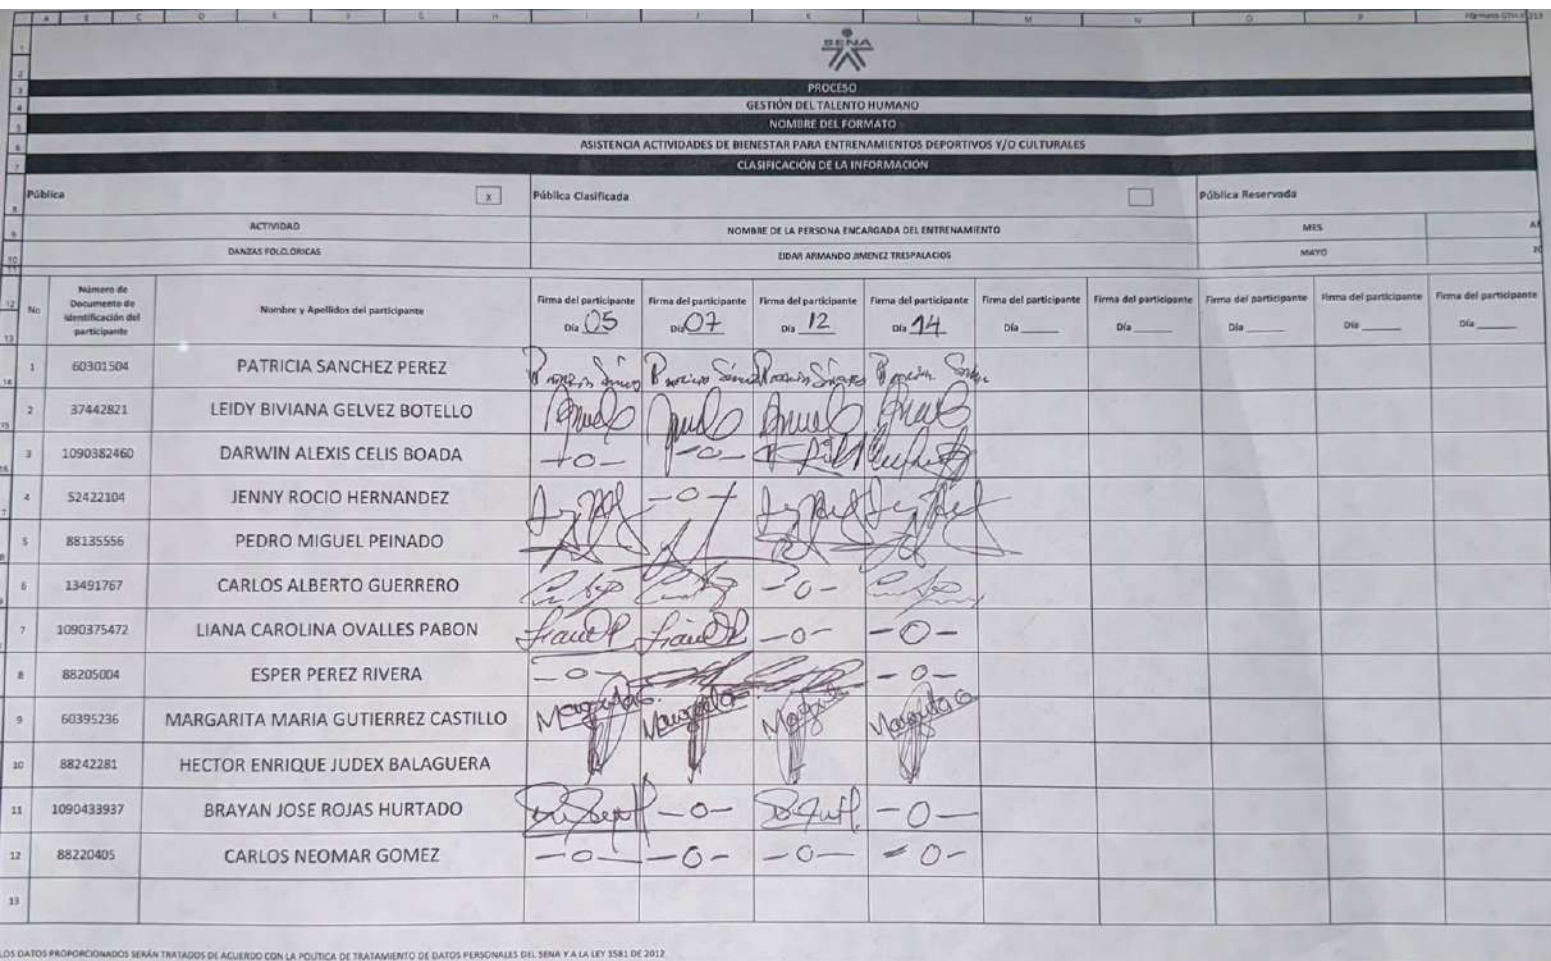 A B C D E F G H I J K L M N O P
SENA
PROCESO
GESTIÓN DEL TALENTO HUMANO
NOMBRE DEL FORMATO
ASISTENCIA ACTIVIDADES DE BIENESTAR PARA ENTRENAMIENTOS DEPORTIVOS Y/O CULTURALES
CLASIFICACIÓN DE LA INFORMACIÓN
Pública x Pública Clasificada Pública Reservada
ACTIVIDAD NOMBRE DE LA PERSONA ENCARGADA DEL ENTRENAMIENTO MES
DANZAS FOLCLORICAS EIDAR ARMANDO JIMENEZ TRESPALACIOS MAYO
No Número de Documento de identificación del participante Nombre y Apellidos del participante Firma del participante Día 05 Firma del participante Día 07 Firma del participante Día 12 Firma del participante Día 14 Firma del participante Día Firma del participante Día Firma del participante Día Firma del participante Día Firma del participante Día
1 60301504 PATRICIA SANCHEZ PEREZ
2 37442821 LEIDY BIVIANA GELVEZ BOTELLO
3 1090382460 DARWIN ALEXIS CELIS BOADA -0- -0-
4 52422104 JENNY ROCIO HERNANDEZ -0-
5 88135556 PEDRO MIGUEL PEINADO
6 13491767 CARLOS ALBERTO GUERRERO -0-
7 1090375472 LIANA CAROLINA OVALLES PABON -0- -0-
8 88205004 ESPER PEREZ RIVERA -0- -0-
9 60395236 MARGARITA MARIA GUTIERREZ CASTILLO Margarita G. Margarita Margarita Margarita G
10 88242281 HECTOR ENRIQUE JUDEX BALAGUERA
11 1090433937 BRAYAN JOSE ROJAS HURTADO -0- -0-
12 88220405 CARLOS NEOMAR GOMEZ -0- -0- -0- -0-
13
LOS DATOS PROPORCIONADOS SERÁN TRATADOS DE ACUERDO CON LA POLÍTICA DE TRATAMIENTO DE DATOS PERSONALES DEL SENA Y A LA LEY 1581 DE 2012